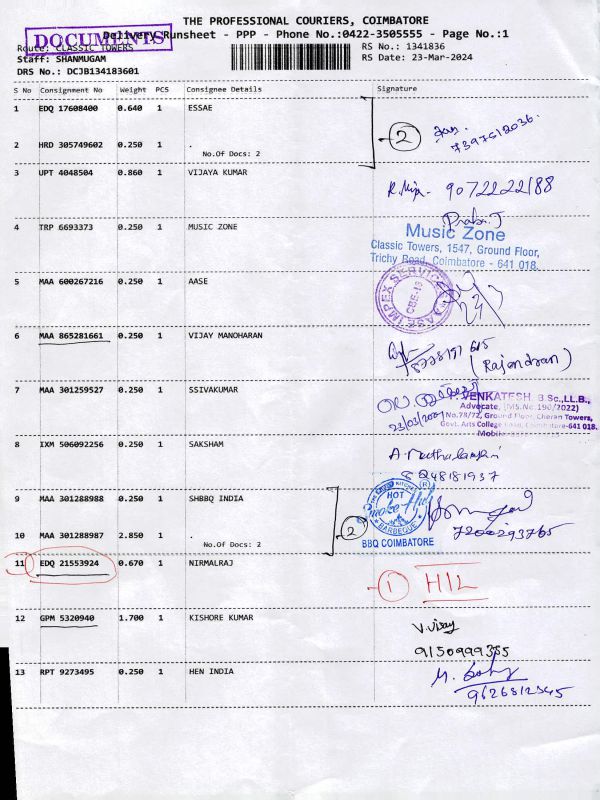 THE PROFESSIONAL COURIERS, COIMBATORE
DOCUMENTS
Delivery Runsheet - PPP - Phone No.:0422-3505555 - Page No.:1
Route: CLASSIC TOWERS
RS No.: 1341836
Staff: SHANMUGAM
RS Date: 23-Mar-2024
DRS No.: DCJB134183601
S No Consignment No Weight PCS Consignee Details Signature
1 EDQ 17608400 0.640 1 ESSAE
2
7397612036.
2 HRD 305749602 0.250 1 .
No.Of Docs: 2
3 UPT 4048504 0.860 1 VIJAYA KUMAR
9072222188
4 TRP 6693373 0.250 1 MUSIC ZONE
Music Zone
Classic Towers, 1547, Ground Floor,
Trichy Road, Coimbatore - 641 018.
5 MAA 600267216 0.250 1 AASE
AASE IMPEX SERVICE
CBE-18
6 MAA 865281661 0.250 1 VIJAY MANOHARAN
(Rajendran)
7 MAA 301259527 0.250 1 SSIVAKUMAR
VENKATESH B Sc.,LL.B.,
Advocate, (MS.No.190/2022)
No.78/72, Ground Floor, Cheran Towers,
Govt. Arts College Road, Coimbatore-641 018.
Mobile
8 IXM 506092256 0.250 1 SAKSHAM
9 MAA 301288988 0.250 1 SHBBQ INDIA
HOT
BARBEQUE
BBQ COIMBATORE
2
7200293765
10 MAA 301288987 2.850 1 .
No.Of Docs: 2
11 EDQ 21553924 0.670 1 NIRMALRAJ
1 HIL
12 GPM 5320940 1.700 1 KISHORE KUMAR
V.vijay
9150999355
13 RPT 9273495 0.250 1 HEN INDIA
9626812345